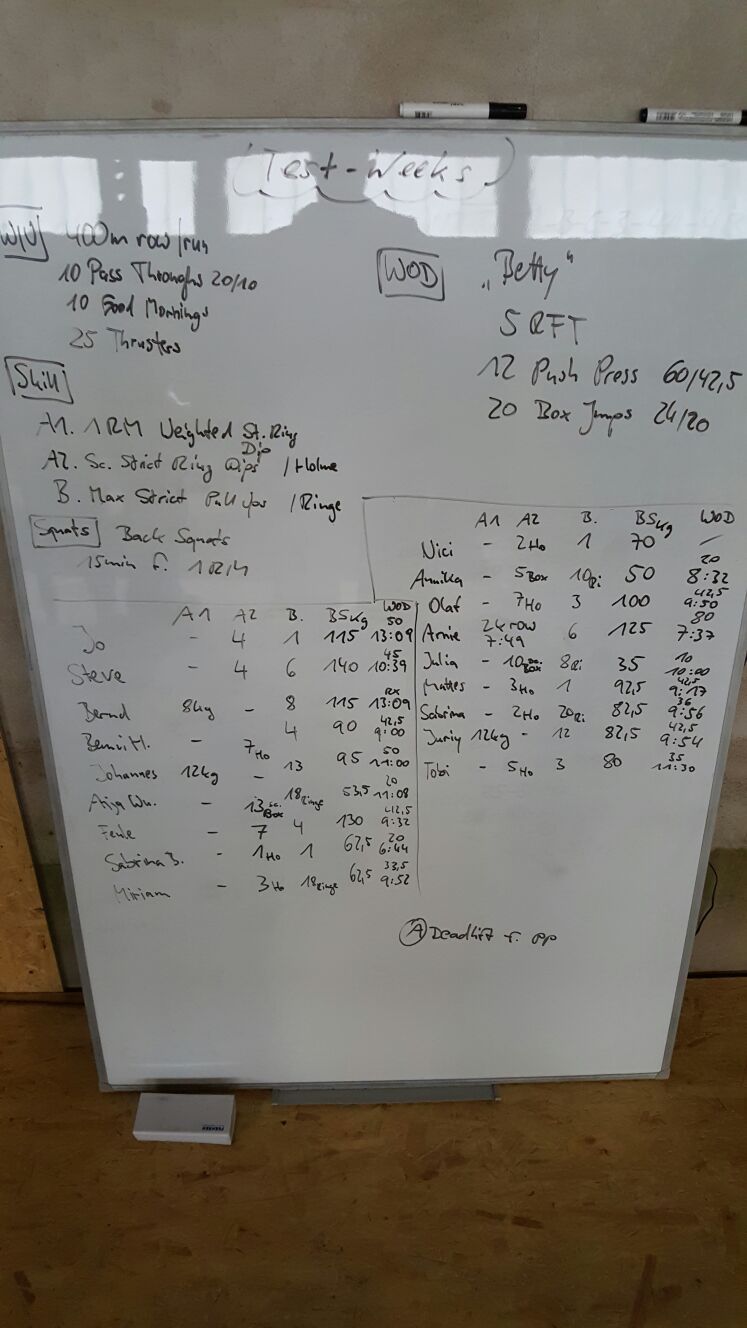 (Test-Weeks)
W/U 400m row/run
10 Pass Throughs 20/10
10 Good Mornings
25 Thrusters
WOD "Betty"
5 RFT
12 Push Press 60/42,5
20 Box Jumps 24/20
Skill
A1. 1RM Weighted St. Ring Dip
A2. Sc. Strict Ring Dips /Holme
B. Max Strict Pull ups /Ringe
Squats Back Squats
15min f. 1RM
A1 A2 B. BSkg WOD
Jo - 4 1 115 50 13:09
Steve - 4 6 140 45 10:39
Bernd 8kg - 8 115 RX 13:09
Benni H. - 7Ho 4 90 42,5 9:00
Johannes 12kg - 13 95 50 11:00
Anja Wu. - 13 sc. Box 18 Ringe 53,5 20 11:08
- 7 4 130 42,5 9:32
Sabrina B. - 1Ho 1 62,5 20 6:44
Miriam - 3Ho 18 Ringe 62,5 33,5 9:52
A1 A2 B. BSkg WOD
Nici - 2Ho 1 70 /
Annika - 5Box 10Ri 50 20 8:32
Olaf - 7Ho 3 100 42,5 9:50
Arnie 24 row 7:49 6 125 80 7:37
Julia - 10 Box 8Ri 35 10 10:00
Mattes - 3Ho 1 92,5 42,5 9:17
Sabrina - 2Ho 20Ri 82,5 36 9:56
Juriy 12kg - 12 82,5 42,5 9:54
Tobi - 5Ho 3 80 35 11:30
A Deadlift f. PP